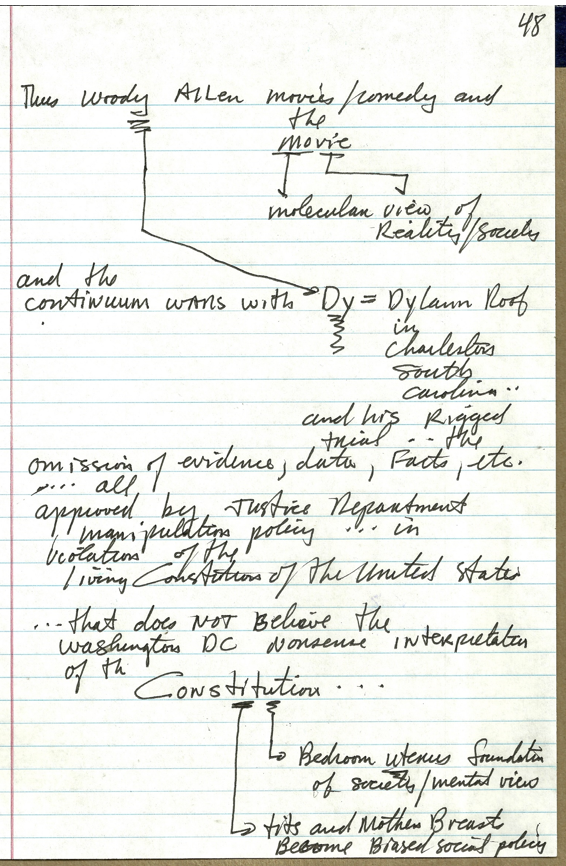 48
Thus Woody Allen movies/comedy and
the
movie
molecular view of
Reality/Society
and the
continuum wars with Dy = Dylann Roof
in
Charleston
South
Carolina..
and his Rigged
trial .. the
omission of evidence, data, Facts, etc.
.... all
approved by Justice Department
manipulation policy ... in
violation of the
living Constitution of the United States
... that does NOT Believe the
Washington DC nonsense interpretation
of th
Constitution ...
Bedroom uterus foundation
of society/mental view
tits and Mother Breasts
Become Biased social policy